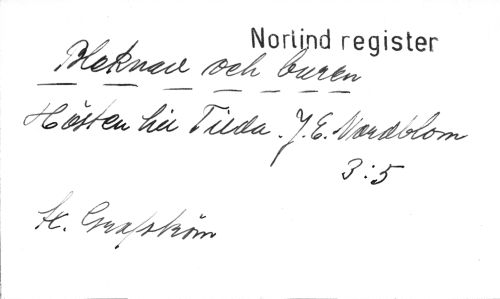 Norlind register
Bleknad och buren
Hösten till Tilda. J. E. Nordblom
3:5
A. Grafström